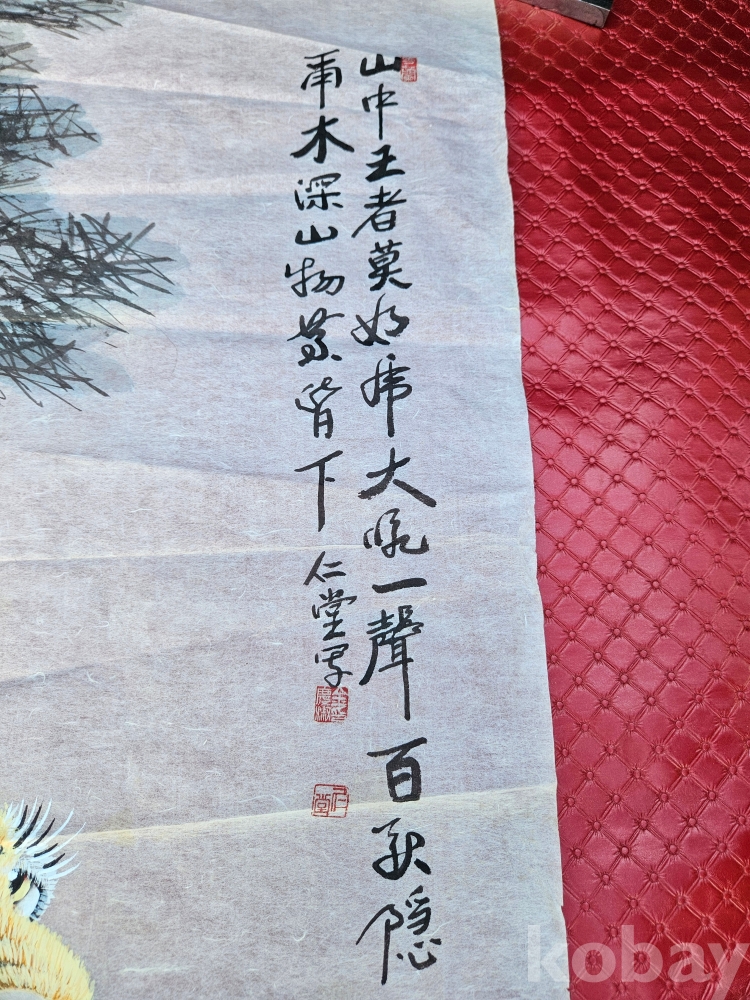 山中王者莫如虎大吼一聲百隱
木深山物皆下 仁堂
kobay